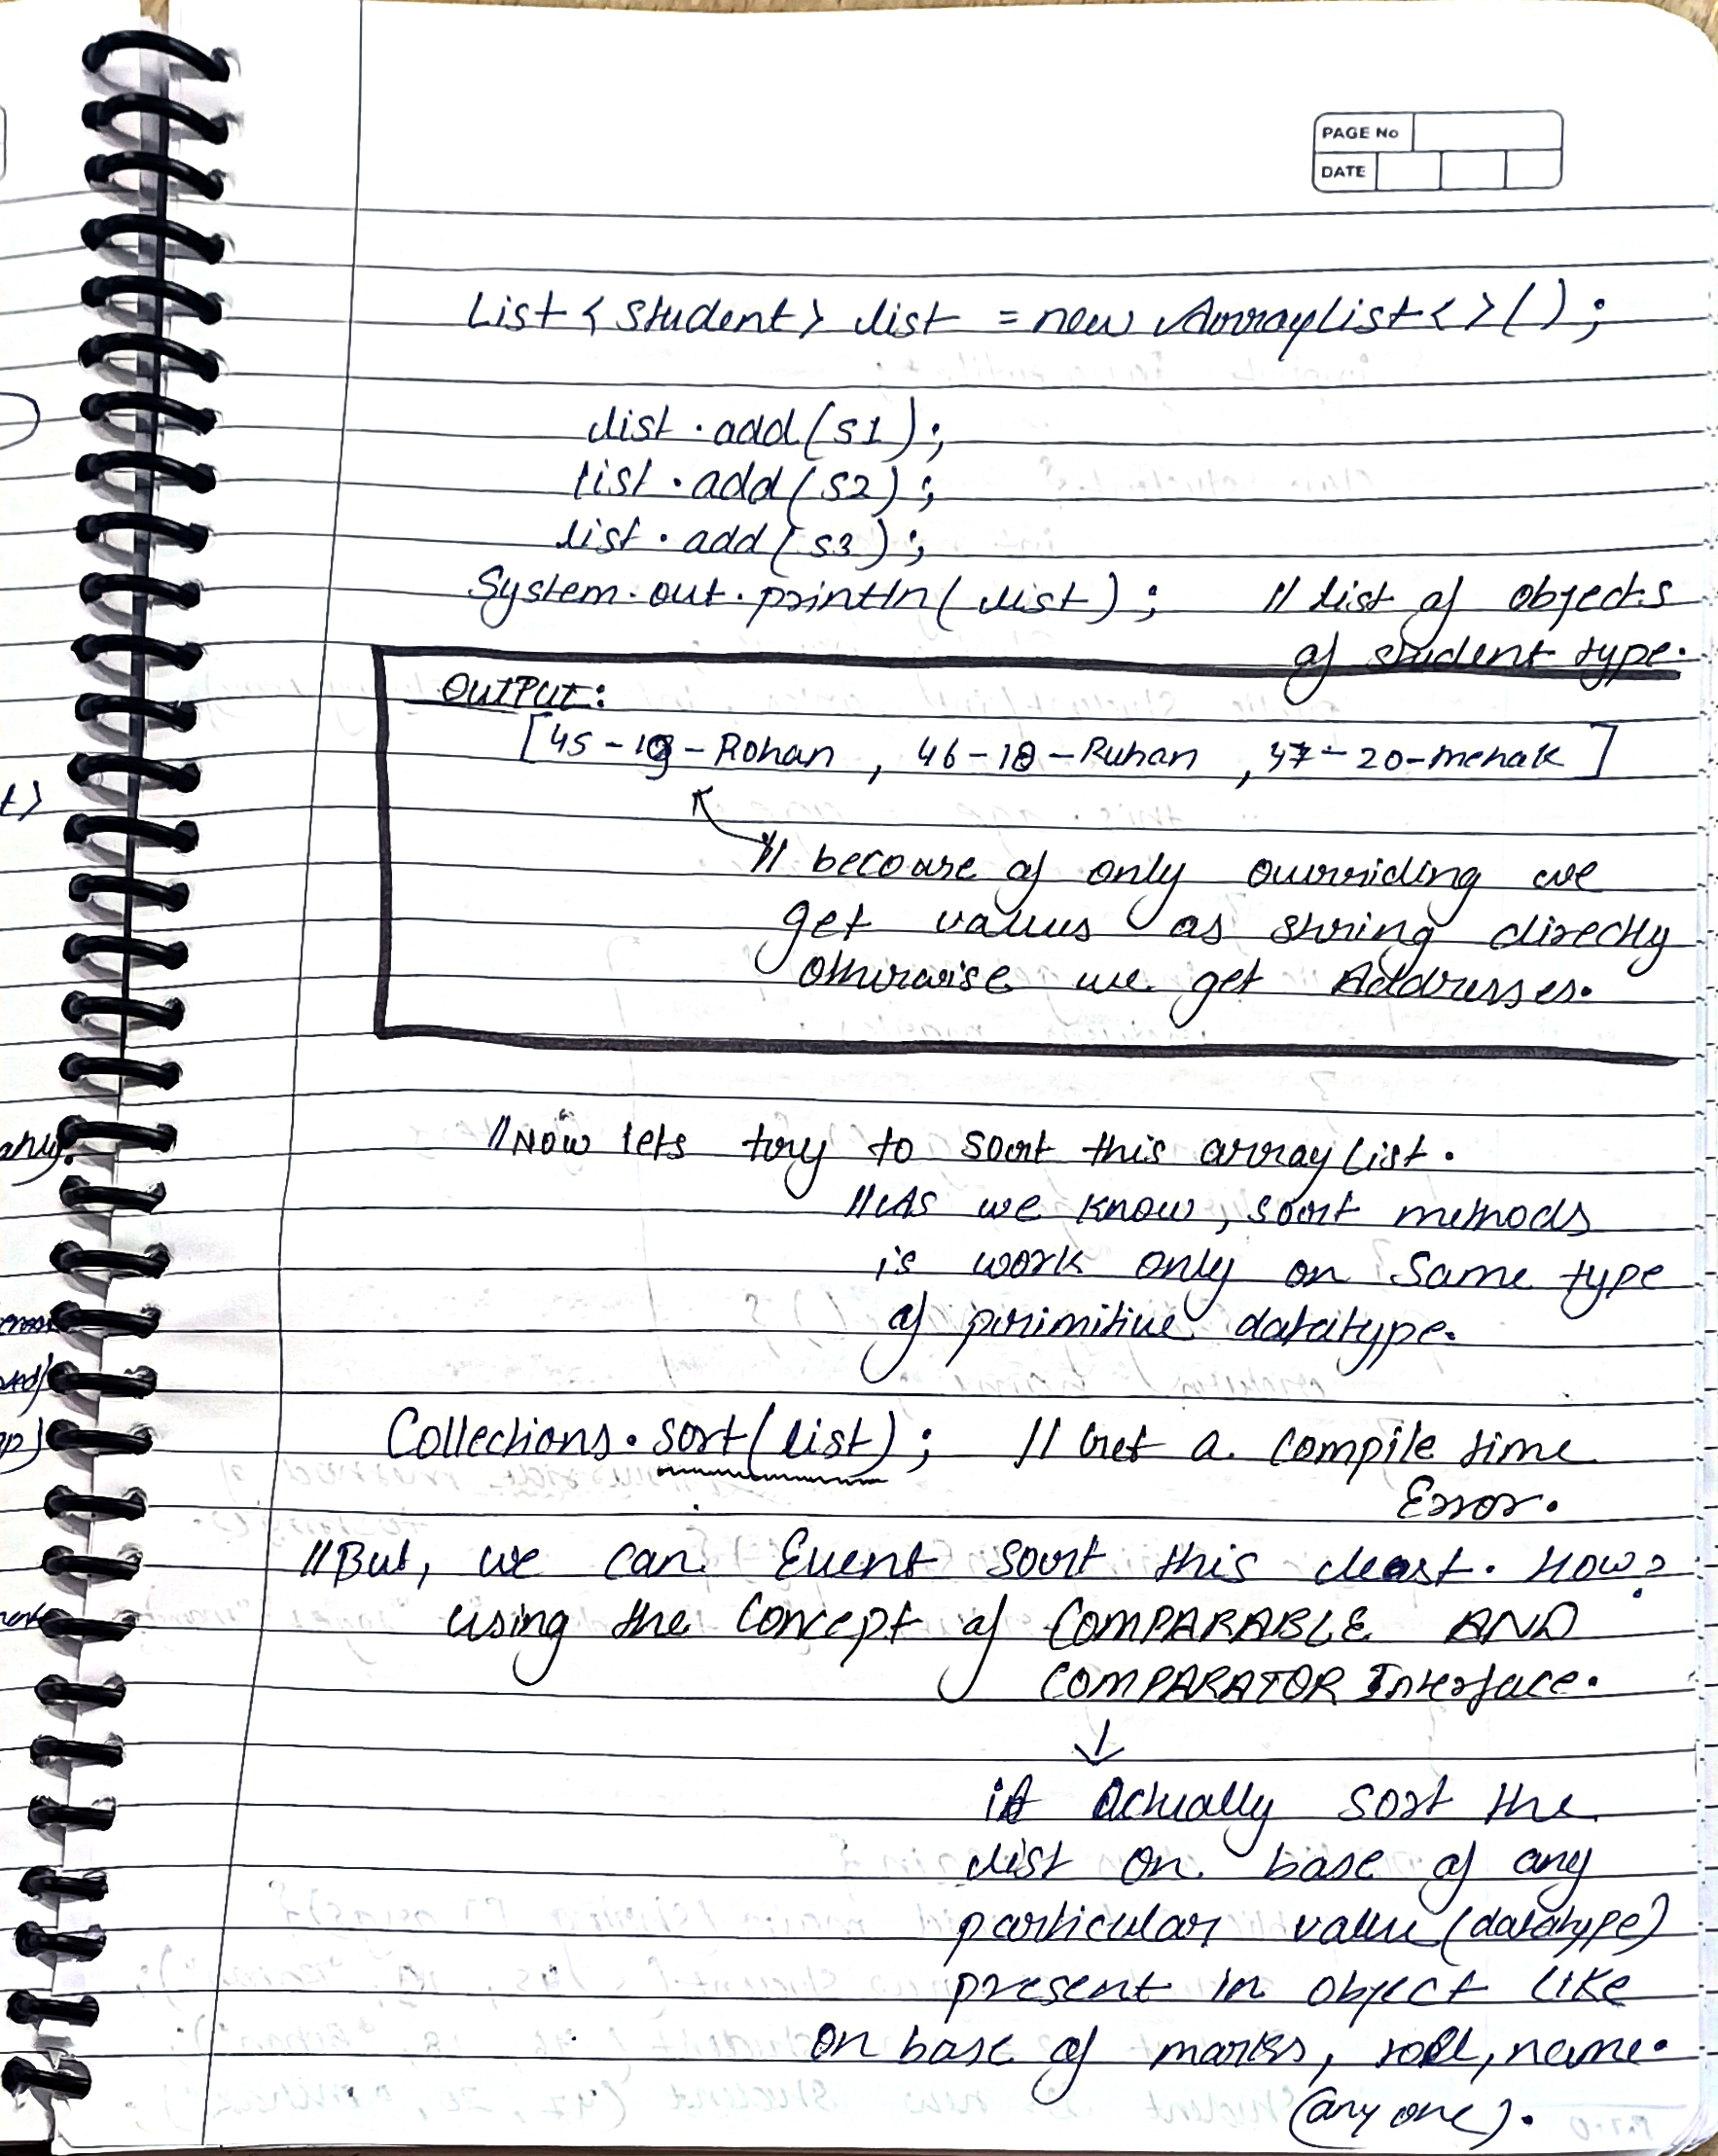 PAGE No
DATE
List<Student> list = new ArrayList<>();
list.add(s1);
list.add(s2);
list.add(s3);
System.out.println(list); // list of objects
of student type.
OUTPUT:
[45-19-Rohan, 46-18-Ruhan, 47-20-mehak]
// because of only overriding we
get values as string directly
otherwise we get Addresses.
//Now lets try to sort this arraylist.
//As we know, sort methods
is work only on same type
of primitive datatype.
Collections.sort(list); // Get a compile time
Error.
//But, we can Event sort this . How?
using the concept of COMPARABLE AND
COMPARATOR Interface.
↓
it Actually sort the
list on base of any
particular value (datatype)
present in object like
on base of marks, roll, name.
(any one).